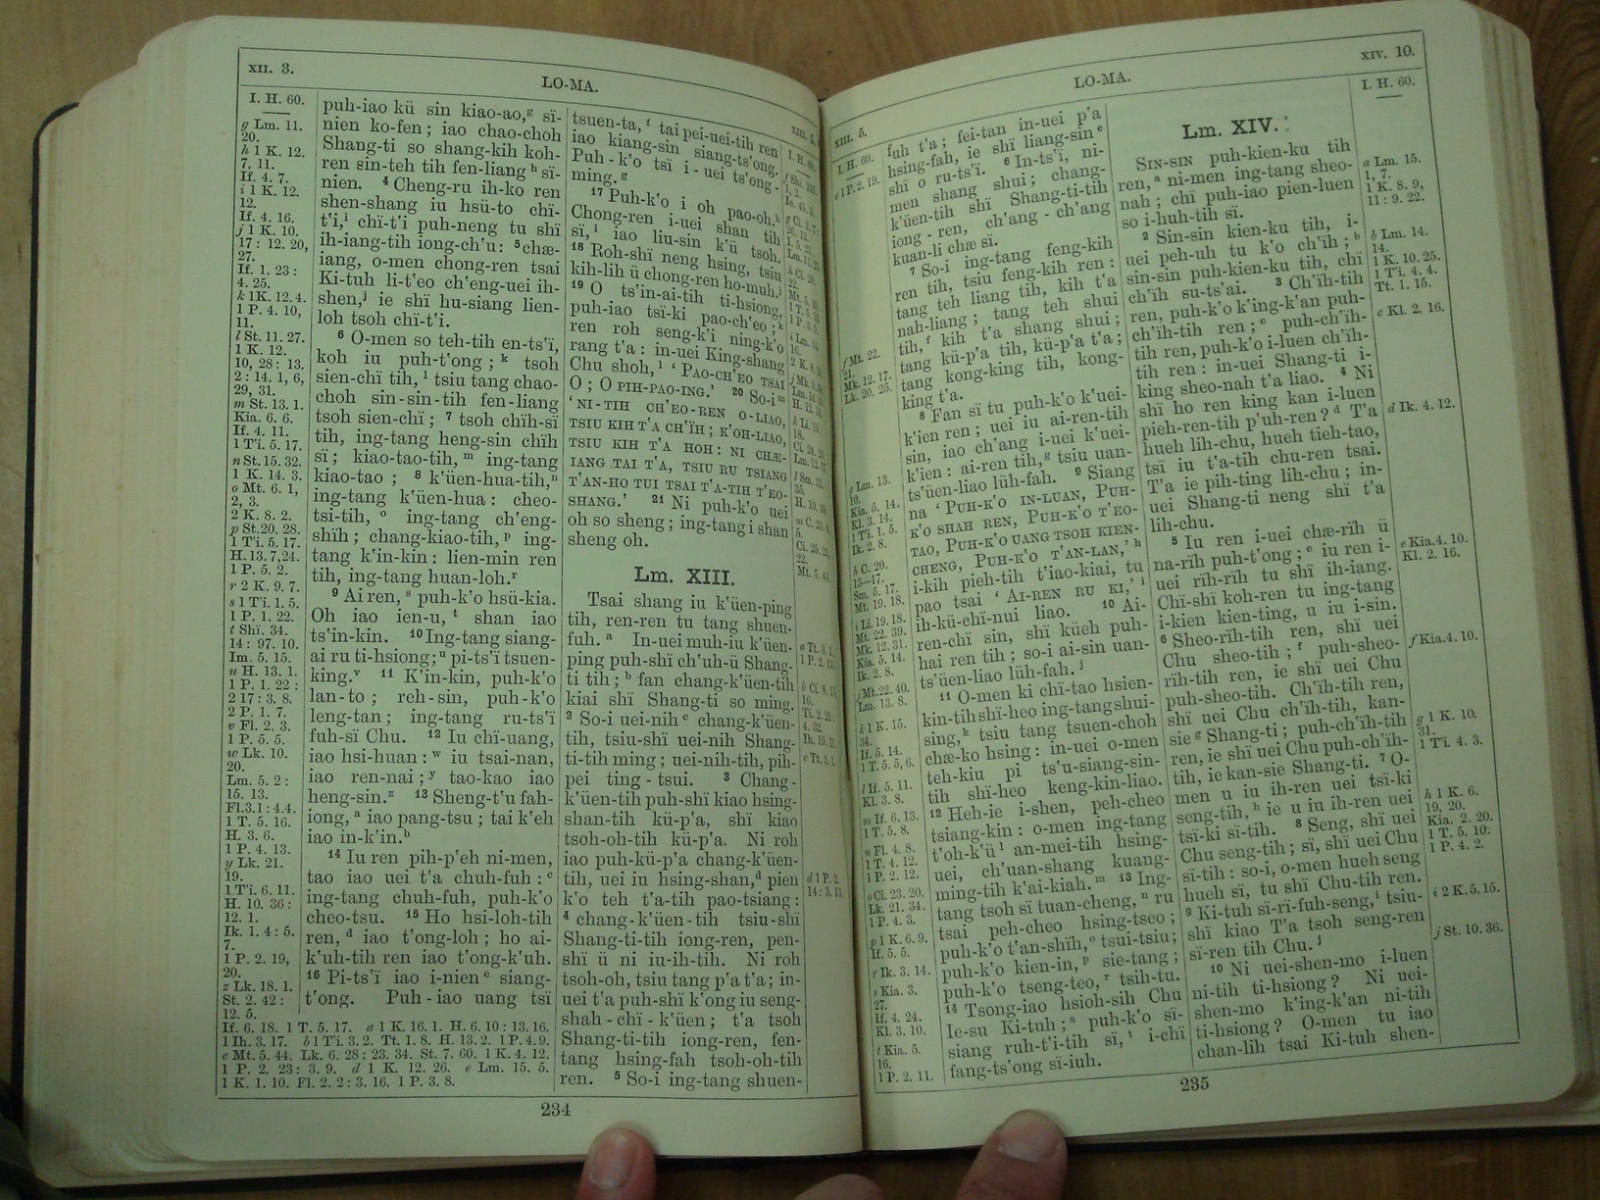 XII. 3.
LO-MA.
I. H. 60.
g Lm. 11.
20.
h 1 K. 12.
7, 11.
If. 4. 7.
i 1 K. 12.
12.
If. 4. 16.
j 1 K. 10.
17: 12. 20,
27.
If. 1. 23:
4. 25.
k 1K. 12.4.
1 P. 4. 10,
11.
l St. 11. 27.
1 K. 12.
10, 28: 13.
2: 14. 1, 6,
29, 31.
m St. 13. 1.
Kia. 6. 6.
If. 4. 11.
1 Ti. 5. 17.
n St. 15. 32.
1 K. 14. 3.
o Mt. 6. 1,
2, 3.
2 K. 8. 2.
p St. 20. 28.
1 T'i. 5. 17.
H. 13. 7, 24.
1 P. 5. 2.
r 2 K. 9. 7.
s 1 T'i. 1. 5.
1 P. 1. 22.
t Shï. 34.
14: 97. 10.
Im. 5. 15.
u H. 13. 1.
1 P. 1. 22:
2 17: 3. 8.
2 P. 1. 7.
v Fl. 2. 3.
1 P. 5. 5.
w Lk. 10.
20.
Lm. 5. 2:
15. 13.
Fl. 3. 1: 4. 4.
1 T. 5. 16.
H. 3. 6.
1 P. 4. 13.
y Lk. 21.
19.
1 T'i. 6. 11.
H. 10. 36:
12. 1.
Ik. 1. 4: 5.
7.
1 P. 2. 19,
20.
z Lk. 18. 1.
St. 2. 42:
12. 5.
puh-iao kü sin kiao-ao,g sï-
nien ko-fen; iao chao-choh
Shang-ti so shang-kih koh-
ren sin-teh tih fen-liang h sï-
nien. 4 Cheng-ru ih-ko ren
shen-shang iu hsü-to chï-
t'i,i chï-t'i puh-neng tu shï
ih-iang-tih iong-ch'u: 5 chæ-
iang, o-men chong-ren tsai
Ki-tuh li-t'eo ch'eng-uei ih-
shen,j ie shï hu-siang lien-
loh tsoh chï-t'i.
6 O-men so teh-tih en-ts'ï,
koh iu puh-t'ong; k tsoh
sien-chï tih, l tsiu tang chao-
choh sin-sin-tih fen-liang
tsoh sien-chï; 7 tsoh chïh-sï
tih, ing-tang heng-sin chïh
sï; kiao-tao-tih, m ing-tang
kiao-tao; 8 k'üen-hua-tih,n
ing-tang k'üen-hua: cheo-
tsi-tih, o ing-tang ch'eng-
shïh; chang-kiao-tih, p ing-
tang k'in-kin: lien-min ren
tih, ing-tang huan-loh.r
9 Ai ren, s puh-k'o hsü-kia.
Oh iao ien-u, t shan iao
ts'in-kin. 10 Ing-tang siang-
ai ru ti-hsiong; u pi-ts'ï tsuen-
king.v 11 K'in-kin, puh-k'o
lan-to; reh-sin, puh-k'o
leng-tan; ing-tang ru-ts'ï
fuh-sï Chu. 12 Iu chï-uang,
iao hsi-huan: w iu tsai-nan,
iao ren-nai; y tao-kao iao
heng-sin.z 13 Sheng-t'u fah-
iong, a iao pang-tsu; tai k'eh
iao in-k'in.b
14 Iu ren pih-p'eh ni-men,
tao iao uei t'a chuh-fuh: c
ing-tang chuh-fuh, puh-k'o
cheo-tsu. 15 Ho hsi-loh-tih
ren, d iao t'ong-loh; ho ai-
k'uh-tih ren iao t'ong-k'uh.
16 Pi-ts'ï iao i-nien e siang-
t'ong. Puh-iao uang tsï
If. 6. 18. 1 T. 5. 17. a 1 K. 16. 1. H. 6. 10: 13. 16.
1 Ih. 3. 17. b 1 T'i. 3. 2. Tt. 1. 8. H. 13. 2. 1 P. 4. 9.
c Mt. 5. 44. Lk. 6. 28: 23. 34. St. 7. 60. 1 K. 4. 12.
1 P. 2. 23: 3. 9. d 1 K. 12. 26. e Lm. 15. 5.
1 K. 1. 10. Fl. 2. 2: 3. 16. 1 P. 3. 8.
tsuen-ta, f tai pei-uei-tih ren
iao kiang-sin siang-ts'ong.
Puh-k'o tsï i-uei ts'ong-
ming. g
17 Puh-k'o i oh pao-oh.h
Chong-ren i-uei shan tih
sï, i iao liu-sin k'ü tsoh.
18 Roh-shï neng hsing, tsiu
kih-lih ü chong-ren ho-muh.j
19 O ts'in-ai-tih ti-hsiong,
puh-iao tsï-ki pao-ch'eo; k
ren roh seng-k'i ning-k'o
rang t'a: in-uei King-shang
Chu shoh, l 'PAO-CH'EO TSAI
O; O PIH-PAO-ING.' 20 So-i m
'NI-TIH CH'EO-REN O-LIAO,
TSIU KIH T'A CH'ÏH; K'OH-LIAO,
TSIU KIH T'A HOH: NI CHÆ-
IANG TAI T'A, TSIU RU TSIANG
T'AN-HO TUI TSAI T'A-TIH T'EO-
SHANG.' 21 Ni puh-k'o uei
oh so sheng; ing-tang i shan
sheng oh.
Lm. XIII.
Tsai shang iu k'üen-ping
tih, ren-ren tu tang shuen-
fuh. a In-uei muh-iu k'üen-
ping puh-shï ch'uh-ü Shang-
ti tih; b fan chang-k'üen-tih
kiai shï Shang-ti so ming.
2 So-i uei-nih c chang-k'üen-
tih, tsiu-shï uei-nih Shang-
ti-tih ming; uei-nih-tih, pih-
pei ting-tsui. 3 Chang-
k'üen-tih puh-shï kiao hsing-
shan-tih kü-p'a, shï kiao
tsoh-oh-tih kü-p'a. Ni roh
iao puh-kü-p'a chang-k'üen-
tih, uei iu hsing-shan,d pien
k'o teh t'a-tih pao-tsiang:
4 chang-k'üen-tih tsiu-shï
Shang-ti-tih iong-ren, pen-
shï ü ni iu-ih-tih. Ni roh
tsoh-oh, tsiu tang p'a t'a; in-
uei t'a puh-shï k'ong iu seng-
shah-chï-k'üen; t'a tsoh
Shang-ti-tih iong-ren, fen-
tang hsing-fah tsoh-oh-tih
ren. 5 So-i ing-tang shuen-
234
XIII. 5.
LO-MA.
XIV. 10.
I. H. 60.
e 1 P. 2. 19.
f Mt. 22.
21.
Mk. 12. 17.
Lk. 20. 25.
g Lm. 13.
10.
Kia. 5. 14.
Kl. 3. 14.
1 Ti. 1. 5.
Ik. 2. 8.
h C. 20.
13—17.
Sm. 5. 17.
Mt. 19. 18.
i Li. 19. 18.
Mt. 22. 39.
Mk. 12. 31.
Kia. 5. 14.
Ik. 2. 8.
j Mt. 22. 40.
Lm. 13. 8.
k 1 K. 15.
34.
If. 5. 14.
1 T. 5. 5, 6.
l If. 5. 11.
Kl. 3. 8.
m If. 6. 13.
1 T. 5. 8.
n Fl. 4. 8.
1 T. 4. 12.
1 P. 2. 12.
o Ci. 23. 20.
Lk. 21. 34.
1 P. 4. 3.
p 1 K. 6. 9.
If. 5. 5.
r Ik. 3. 14.
s Kia. 3.
27.
If. 4. 24.
Kl. 3. 10.
t Kia. 5.
16.
1 P. 2. 11.
fuh t'a; fei-tan in-uei p'a
hsing-fah, ie shï liang-sin e
shï o ru-ts'ï. 6 In-ts'ï, ni-
men shang shui; chang-
k'üen-tih shï Shang-ti-tih
iong-ren, ch'ang-ch'ang
kuan-li chæ sï.
7 So-i ing-tang feng-kih
ren tih, tsiu feng-kih ren:
tang teh liang tih, kih t'a
nah-liang; tang teh shui
tih,f kih t'a shang shui;
tang kü-p'a tih, kü-p'a t'a;
tang kong-king tih, kong-
king t'a.
8 Fan sï tu puh-k'o k'uei-
k'ien ren; uei iu ai-ren-tih
sin, iao ch'ang i-uei k'uei-
k'ien: ai-ren tih, g tsiu uan-
ts'üen-liao lüh-fah. 9 Siang
na 'PUH-K'O IN-LUAN, PUH-
K'O SHAH REN, PUH-K'O T'EO-
TAO, PUH-K'O UANG TSOH KIEN-
CHENG, PUH-K'O T'AN-LAN,' h
i-kih pieh-tih t'iao-kiai, tu
pao tsai 'AI-REN RU KI,' i
ih-kü-chï-nui liao. 10 Ai-
ren-chï sin, shï küeh puh-
hai ren tih; so-i ai-sin uan-
ts'üen-liao lüh-fah. j
11 O-men ki chï-tao hsien-
kin-tih shï-heo ing-tang shui-
sing,k tsiu tang tsuen-choh
chæ-ko hsing: in-uei o-men
teh-kiu pi ts'u-siang-sin-
tih shï-heo keng-kin-liao.
12 Heh-ie i-shen, peh-cheo
tsiang-kin: o-men ing-tang
t'oh-k'ü l an-mei-tih hsing-
uei, ch'uan-shang kuang-
ming-tih k'ai-kiah. m 13 Ing-
tang tsoh sï tuan-cheng, n ru
tsai peh-cheo hsing-tseo;
puh-k'o t'an-shïh, o tsui-tsiu;
puh-k'o kien-in, p sie-tang;
puh-k'o tseng-teo, r tsih-tu.
14 Tsong-iao hsioh-sih Chu
Ie-su Ki-tuh; s puh-k'o sï-
siang ruh-t'i-tih sï, t i-chï
fang-ts'ong sï-iuh.
Lm. XIV.
SIN-SIN puh-kien-ku tih
ren, a ni-men ing-tang sheo-
nah; chï puh-iao pien-luen
so i-huh-tih sï.
2 Sin-sin kien-ku tih, i-
uei peh-uh tu k'o ch'ïh; b
sin-sin puh-kien-ku tih, chï
ch'ïh su-ts'ai. 3 Ch'ïh-tih
ren, puh-k'o k'ing-k'an puh-
ch'ïh-tih ren; c puh-ch'ïh-
tih ren, puh-k'o i-luen ch'ïh-
tih ren: in-uei Shang-ti i-
king sheo-nah t'a liao. 4 Ni
shï ho ren king kan i-luen
pieh-ren-tih p'uh-ren? d T'a
hueh lih-chu, hueh tieh-tao,
tsï iu t'a-tih chu-ren tsai.
T'a ie pih-ting lih-chu; in-
uei Shang-ti neng shï t'a
lih-chu.
5 Iu ren i-uei chæ-rïh ü
na-rïh puh-t'ong; e iu ren i-
uei rïh-rïh tu shï ih-iang.
Chï-shï koh-ren tu ing-tang
i-kien kien-ting, u iu i-sin.
6 Sheo-rïh-tih ren, shï uei
Chu sheo-tih; f puh-sheo-
rïh-tih ren, ie shï uei Chu
puh-sheo-tih. Ch'ïh-tih ren,
shï uei Chu ch'ïh-tih, kan-
sie g Shang-ti; puh-ch'ïh-tih
ren, ie shï uei Chu puh-ch'ïh-
tih, ie kan-sie Shang-ti. 7 O-
men u iu ih-ren uei tsï-ki
seng-tih, h ie u iu ih-ren uei
tsï-ki sï-tih. 8 Seng, shï uei
Chu seng-tih; sï, shï uei Chu
sï-tih: so-i, o-men hueh seng
hueh sï, tu shï Chu-tih ren.
9 Ki-tuh sï-rï-fuh-seng, i tsiu-
shï kiao T'a tsoh seng-ren
sï-ren tih Chu. j
10 Ni uei-shen-mo i-luen
ni-tih ti-hsiong? Ni uei-
shen-mo k'ing-k'an ni-tih
ti-hsiong? O-men tu iao
chan-lih tsai Ki-tuh shen-
I. H. 60.
a Lm. 15.
1, 7.
1 K. 8. 9,
11: 9. 22.
b Lm. 14.
14.
1 K. 10. 25.
1 T'i. 4. 4.
Tt. 1. 15.
c Kl. 2. 16.
d Ik. 4. 12.
e Kia. 4. 10.
Kl. 2. 16.
f Kia. 4. 10.
g 1 K. 10.
31.
1 T'i. 4. 3.
h 1 K. 6.
19, 20.
Kia. 2. 20.
1 T. 5. 10.
1 P. 4. 2.
i 2 K. 5. 15.
j St. 10. 36.
235